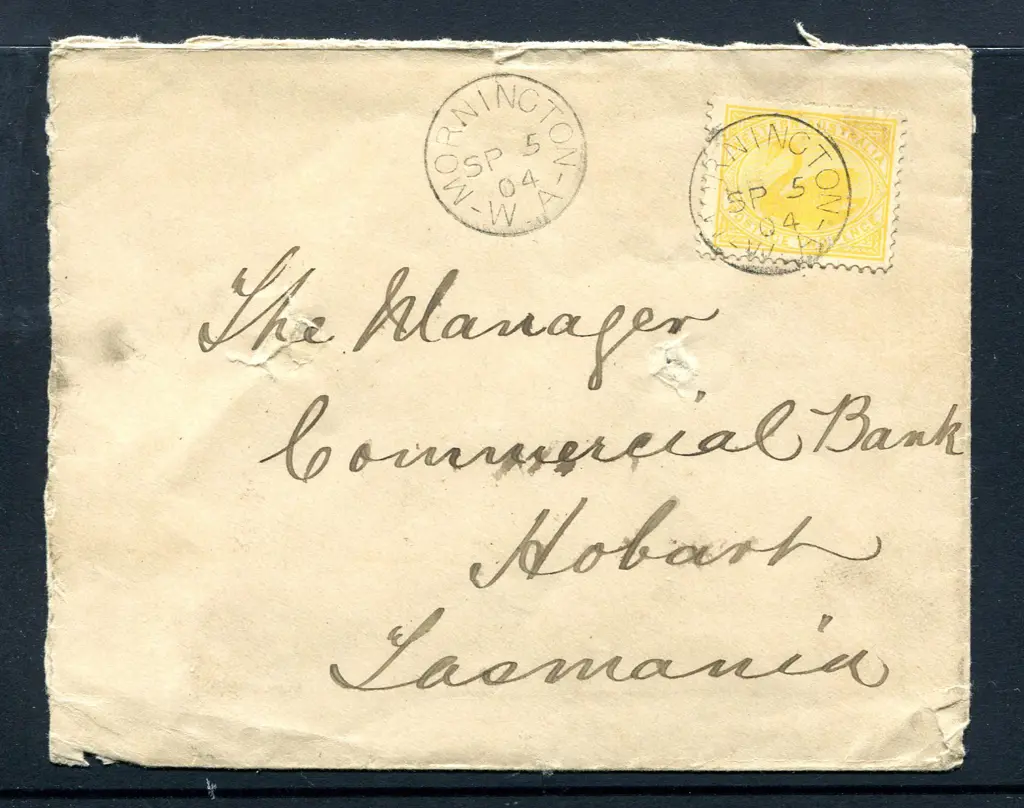 MORNINGTON
SP 5
04
-W.A-
RNINGTON
SP 5
04
-W.A-
The Manager
Commercial Bank
Hobart
Tasmania